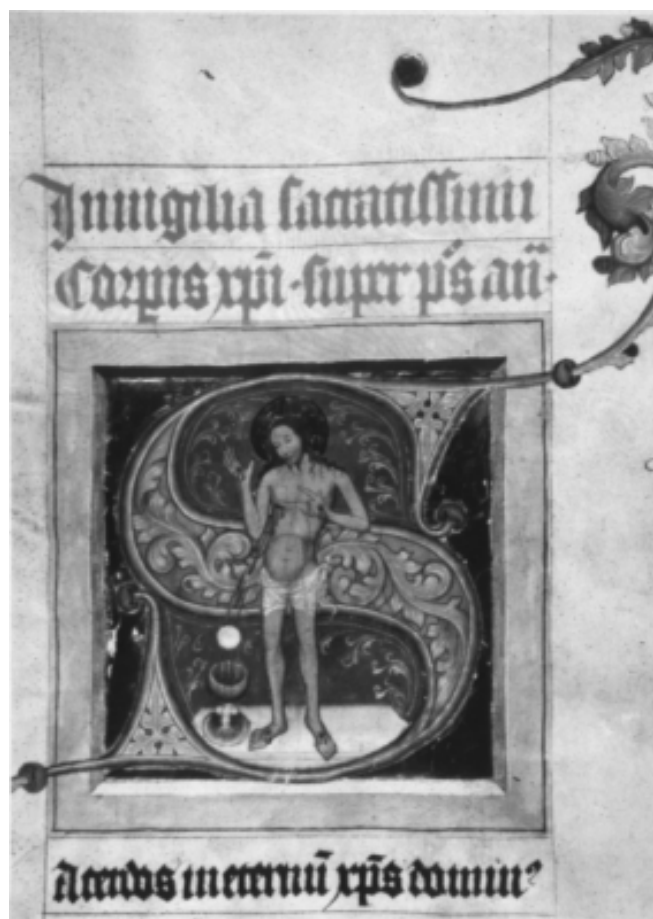 In vigilia sacratissimi
Corpis xp̄i · super p̄s an̄ ·
S
acerdos in eternū xp̄s dominꝰ